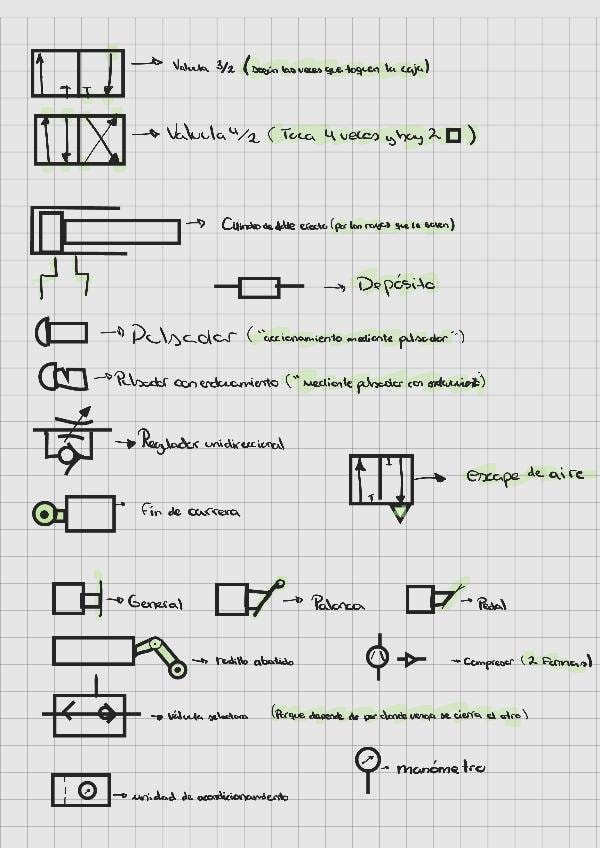 Valvula 3/2 (Según las veces que toquen la caja)
Valvula 4/2 (Toca 4 veces y hay 2 )
Cilindro de doble efecto (por las rayas que le salen)
Depósito
Pulsador ("accionamiento mediante pulsador")
Pulsador con enclavamiento ("mediante pulsador con enclavamient")
Regulador unidireccional
escape de aire
Fin de carrera
General
Palanca
Pedal
rodillo abatido
Compresor (2 Formas)
Válvula selectora (Porque depende de por donde venga se cierra el otro)
manómetro
unidad de acondicionamiento